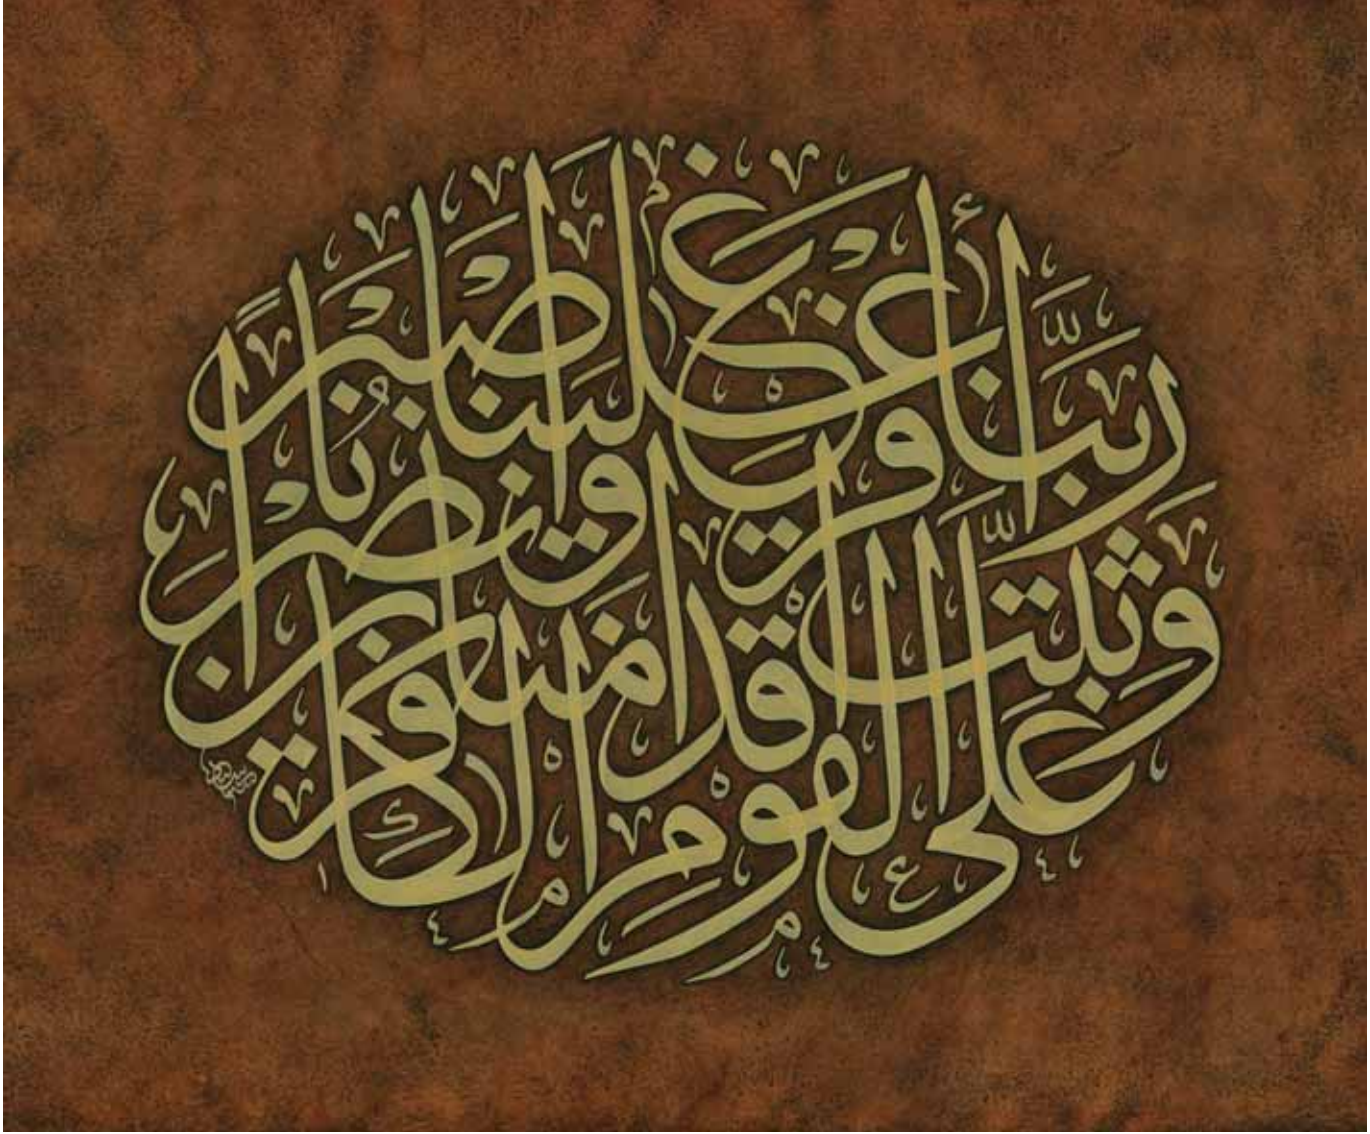 رَبَّنَا أَفْرِغْ عَلَيْنَا صَبْرًا
وَثَبِّتْ أَقْدَامَنَا وَانْصُرْنَا
عَلَى الْقَوْمِ الْكَافِرِينَ